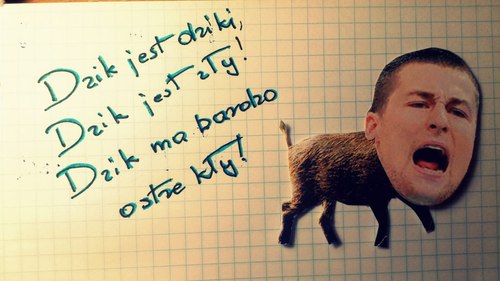 Dzik jest dziki,
Dzik jest zły!
Dzik ma bardzo
ostre kły!